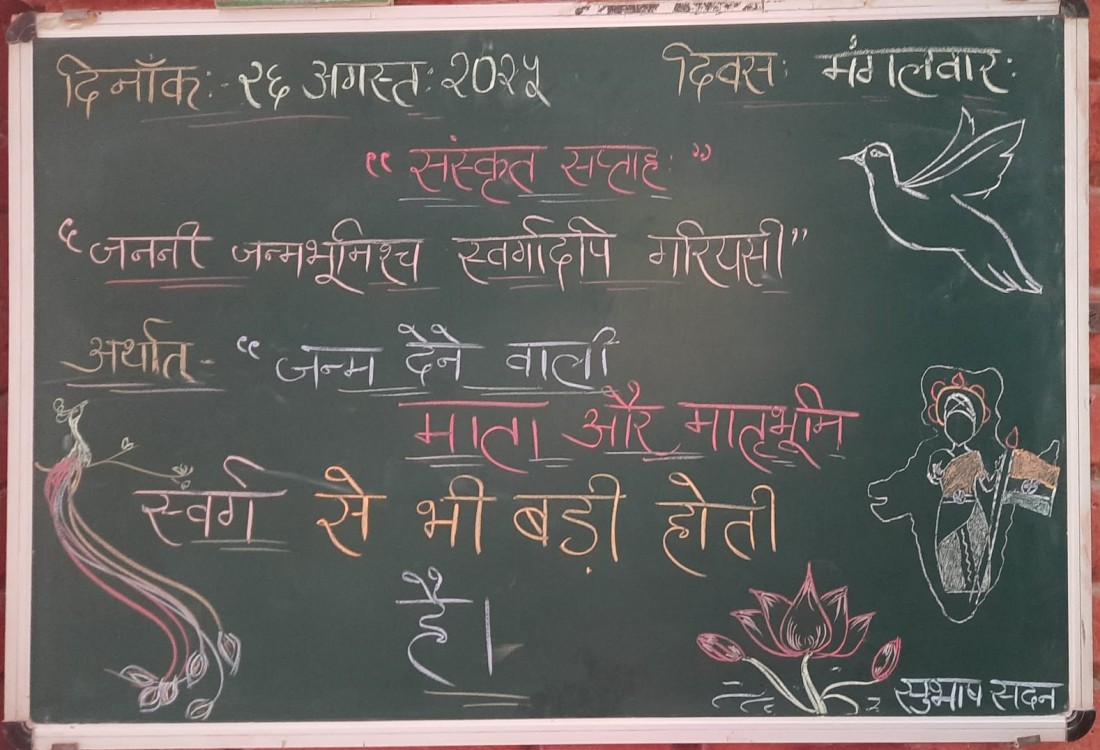 दिनाँकः- २६ अगस्तः २०२५ दिवसः मंगलवारः
“ संस्कृत सप्ताहः ”
“जननी जन्मभूमिश्च स्वर्गादपि गरियसी”
अर्थात् - “जन्म देने वाली
माता और मातृभूमि
स्वर्ग से भी बड़ी होती
है।
सुभाष सदन